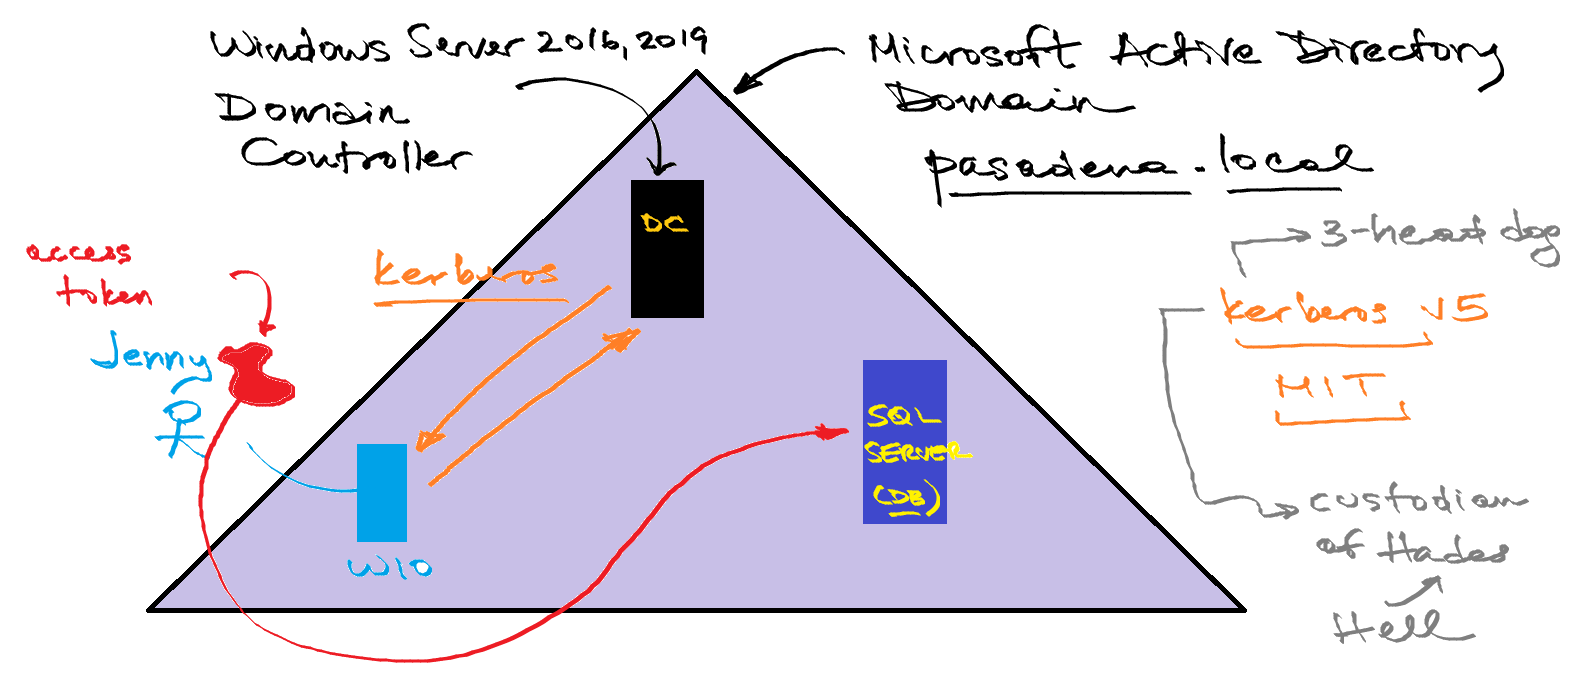 Windows Server 2016, 2019
Domain
Controller
Microsoft Active Directory
Domain
pasadena.local
DC
kerberos
access
token
Jenny
W10
SQL
SERVER
(DB)
3-head dog
kerberos v5
MIT
custodian
of Hades
Hell